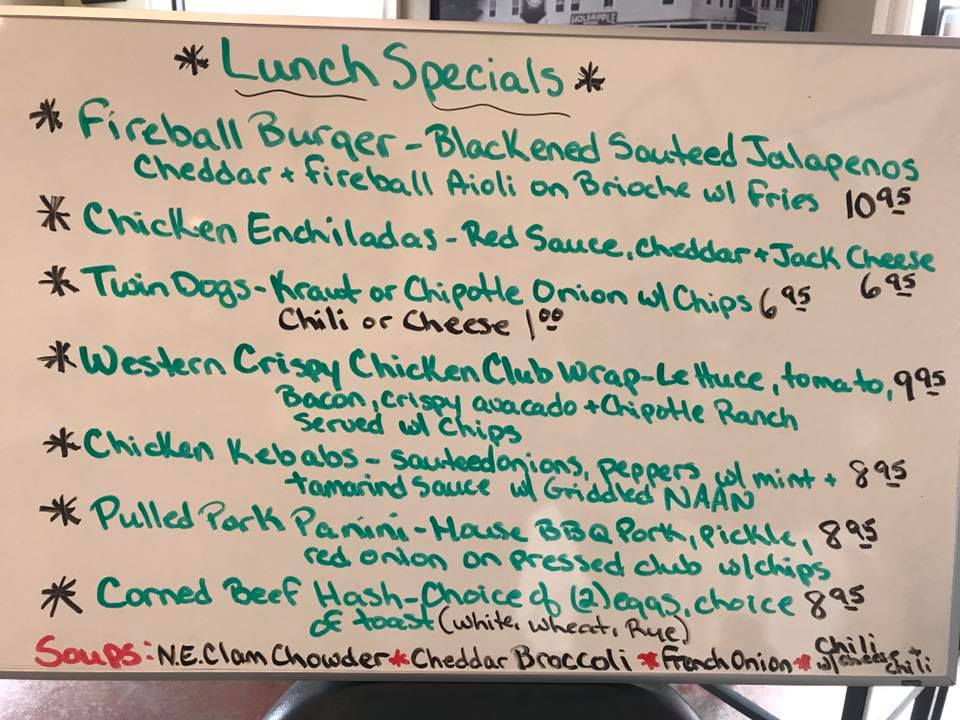 HOLSAPPLE
* Lunch Specials *
* Fireball Burger - Blackened Sauteed Jalapenos
Cheddar + Fireball Aioli on Brioche w/ Fries 10 95
* Chicken Enchiladas - Red Sauce, cheddar + Jack Cheese
6 95
* Twin Dogs - Kraut or Chipotle Onion w/ Chips 6 95
Chili or Cheese 1 00
* Western Crispy Chicken Club Wrap - Lettuce, tomato, 9 95
Bacon, crispy avacado + Chipotle Ranch
Served w/ Chips
* Chicken Kebabs - sauteed onions, peppers w/ mint + 8 95
tamarind sauce w/ Griddled NAAN
* Pulled Pork Panini - House BBQ Pork, pickle, 8 95
red onion on pressed club w/ chips
* Corned Beef Hash - Choice of (2) eggs, choice 8 95
of toast (white, wheat, Rye)
Soups: N.E. Clam Chowder * Cheddar Broccoli * French Onion * Chili + w/ cheese chili